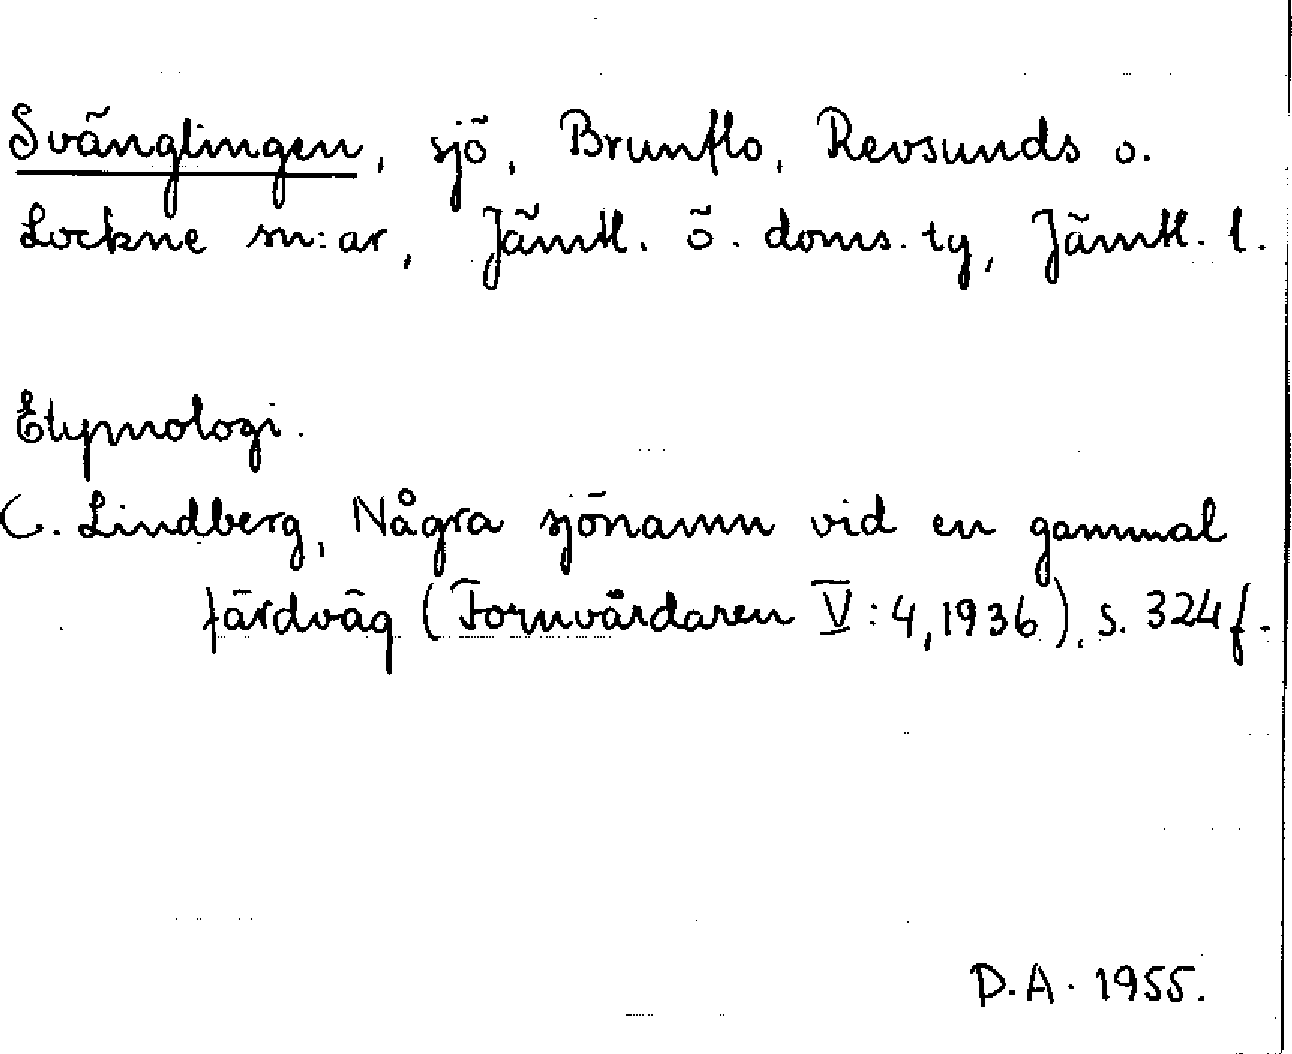 Svänglingen, sjö, Brunflo, Revsunds o.
Lockne sn:ar, Jämtl. ö. doms. tg, Jämtl. l.
Etymologi.
C. Lindberg, Några sjönamn vid en gammal
färdväg (Fornvårdaren V:4, 1936), s. 324 f.
D.A. 1955.